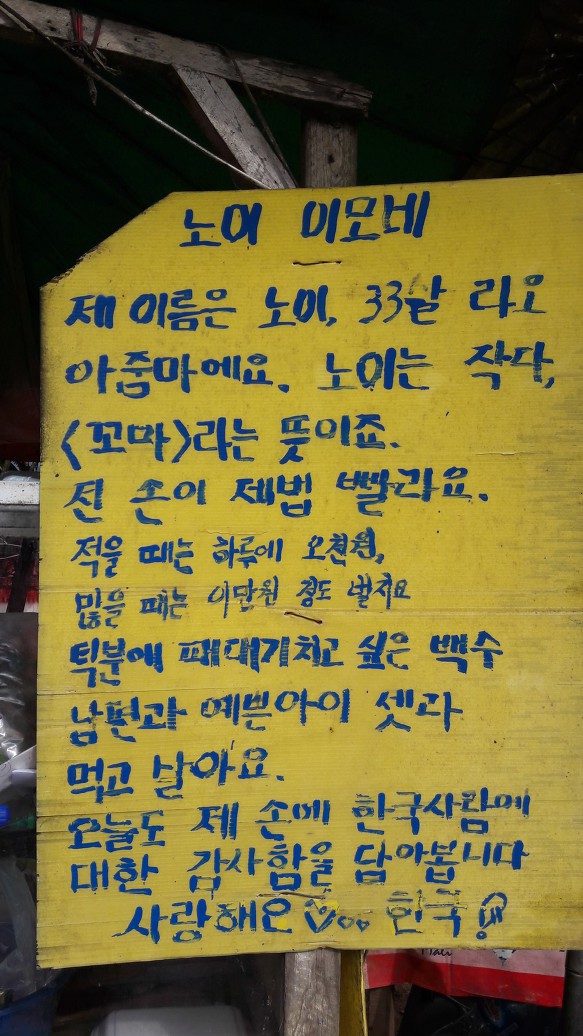 노이 이모네
제 이름은 노이, 33살 라오
아줌마에요. 노이는 작다,
<꼬마>라는 뜻이죠.
전 손이 제법 빨라요.
적을 때는 하루에 오천원,
많을 때는 이만원 정도 벌지요
턱분에 패대기치고 싶은 백수
남편과 예쁜아이 셋과
먹고 살아요.
오늘도 제 손에 한국사람에
대한 감사함을 담아봅니다
사랑해요 한국